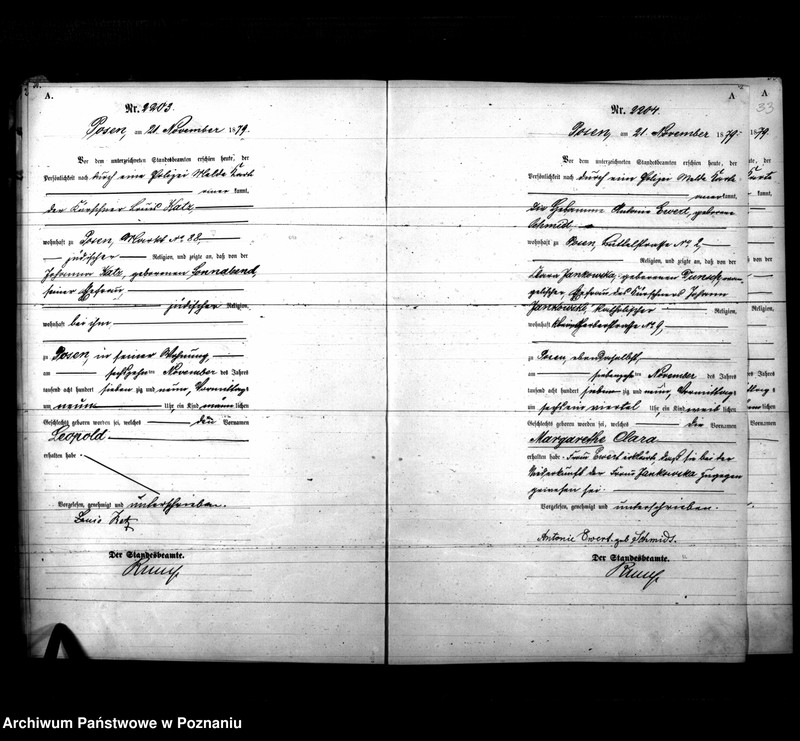 A.
Nr. 2203.
Posen, am 21. November 1879.
Vor dem unterzeichneten Standesbeamten erschien heute, der
Persönlichkeit nach durch eine Polizei Melde Karte
kannt,
der Kürschner Louis Katz,
wohnhaft zu Posen, Markt No 82,
jüdischer Religion, und zeigte an, daß von der
Johanna Katz, geborenen
seiner Ehefrau,
jüdischer Religion,
wohnhaft bei ihm
zu Posen, in seiner Wohnung,
am sechszehnten November des Jahres
tausend acht hundert sieben zig und neun, Vormittags
um neun Uhr ein Kind männlichen
Geschlechts geboren worden sei, welches den Vornamen
Leopold
erhalten habe.
Vorgelesen, genehmigt und unterschrieben.
Louis Katz
Der Standesbeamte.
A
Nr. 2204.
Posen, am 21. November 1879.
Vor dem unterzeichneten Standesbeamten erschien heute, der
Persönlichkeit nach durch eine Polizei Melde Karte
kannt,
die Hebamme Antonie Ewert, geborene
Schmidt,
wohnhaft zu Posen, No 2,
Religion, und zeigte an, daß von der
Clara Jankowska, geborenen evan-
gelischer Ehefrau des Kürschners Johann
Jankowski, katholischer Religion,
wohnhaft No 9,
zu Posen, ebendaselbst,
am siebzehnten November des Jahres
tausend acht hundert sieben zig und neun, Vormittags
um sechs ein viertel Uhr ein Kind weiblichen
Geschlechts geboren worden sei, welches die Vornamen
Margarethe Clara
erhalten habe. Frau Ewert erklärt, daß sie bei der
Niederkunft der Frau Jankowska zugegen
gewesen sei.
Vorgelesen, genehmigt und unterschrieben.
Antonie Ewert geb Schmidt.
Der Standesbeamte.
A
33
1879
der
Karte
kannt,
von der
Religion,
des Jahres
lichen
Vornamen
Archiwum Państwowe w Poznaniu